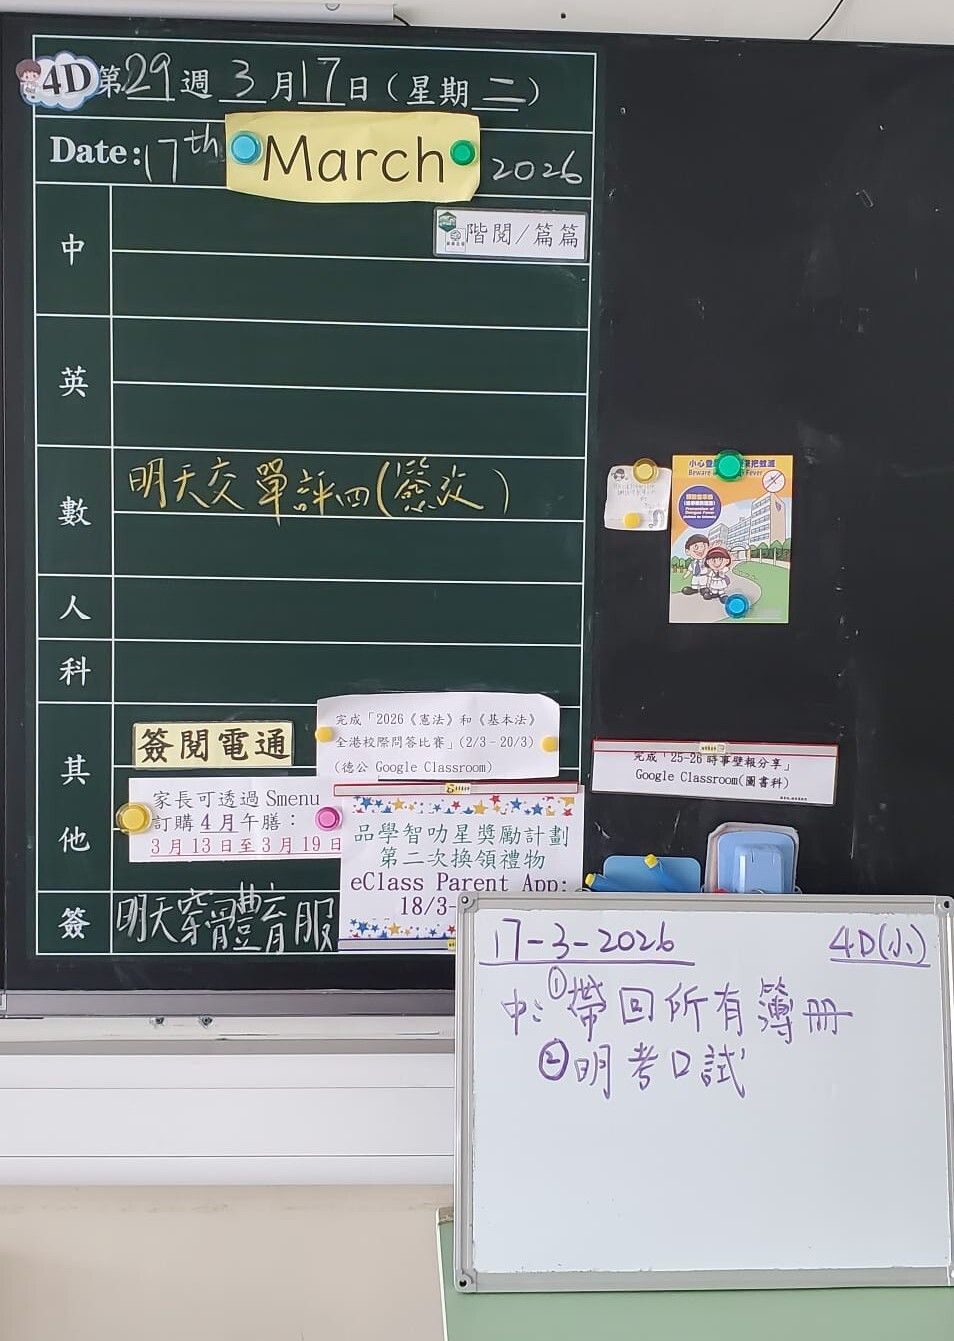 4D 第29週 3月17日(星期二)
Date: 17th March 2026
中
階閱/篇篇
英
數
明天交單評四(簽交)
人
科
其他
簽閱電通
完成「2026《憲法》和《基本法》
全港校際問答比賽」(2/3–20/3)
(德公 Google Classroom)
家長可透過 Smenu
訂購 4月午膳:
3月13日至3月19日
品學智叻星獎勵計劃
第二次換領禮物
eClass Parent App:
18/3-
簽
明天穿體育服
小心登
把蚊滅
Beware
Fever
預防登革熱
Prevention of
Dengue Fever
完成「25-26 時事壁報分享」
Google Classroom(圖書科)
17-3-2026 4D(小)
中: ①帶回所有簿冊
②明考口試